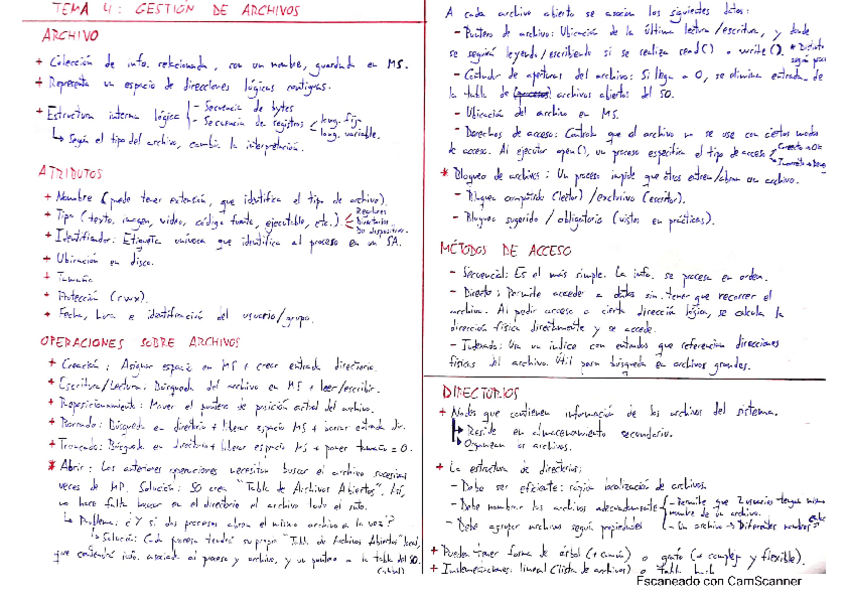 TEMA 4: GESTIÓN DE ARCHIVOS
ARCHIVO
+ Colección de info. relacionada, con un nombre, guardada en MS.
+ Representa un espacio de direcciones lógicas contiguas.
+ Estructura interna lógica - Secuencia de bytes
- Secuencia de registros long. fija
long. variable.
↳ Según el tipo del archivo, cambia la interpretación.
ATRIBUTOS
+ Nombre (puede tener extensión, que identifica el tipo de archivo).
+ Tipo (texto, imagen, video, código fuente, ejecutable, etc.) Regulares
Directorios
De dispositivos.
+ Identificador: Etiqueta unívoca que identifica al proceso en un SA.
+ Ubicación en disco.
+ Tamaño
+ Protección (rwx).
+ Fecha, hora e identificación del usuario/grupo.
OPERACIONES SOBRE ARCHIVOS
+ Creación: Asignar espacio en MS + crear entrada directorio.
+ Escritura/Lectura: Búsqueda del archivo en MS + leer/escribir.
+ Reposicionamiento: Mover el puntero de posición actual del archivo.
+ Borrado: Búsqueda en directorio + liberar espacio MS + borrar entrada dir.
+ Truncado: Búsqueda en directorio + liberar espacio MS + poner tamaño = 0.
* Abrir: Las anteriores operaciones necesitan buscar el archivo sucesivas
veces de MP. Solución: SO crea "Tabla de Archivos Abiertos". Así,
no hace falta buscar en el directorio el archivo todo el rato.
↳ Problema: ¿Y si dos procesos abren el mismo archivo a la vez?
↳ Solución: Cada proceso tendrá su propia "Tabla de Archivos Abiertos" local,
que contendrá info. asociada al proceso y archivo, y un puntero a la tabla del SO.
(global)
A cada archivo abierto se asocian los siguientes datos:
- Puntero de archivo: Ubicación de la última lectura/escritura, y donde
se seguirá leyendo/escribiendo si se realiza read() o write(). * Distinto
según proc
- Contador de aperturas del archivo: Si llega a 0, se elimina entrada de
la tabla de archivos abiertos del SO.
- Ubicación del archivo en MS.
- Derechos de acceso: Controla que el archivo no se use con ciertos modos
de acceso. Al ejecutar open(), un proceso especifica el tipo de acceso
* Bloqueo de archivos: Un proceso impide que otros entren/abran un archivo.
- Bloqueo compartido (lector) / exclusivo (escritor).
- Bloqueo sugerido / obligatorio (vistos en prácticas).
MÉTODOS DE ACCESO
- Secuencial: Es el más simple. La info. se procesa en orden.
- Directo: Permite acceder a datos sin tener que recorrer el
archivo. Al pedir acceso a cierta dirección lógica, se calcula la
dirección física directamente y se accede.
- Indexado: Usa un índice con entradas que referencian direcciones
físicas del archivo. Útil para búsqueda en archivos grandes.
DIRECTORIOS
+ Nodos que contienen información de los archivos del sistema.
↳ Reside en almacenamiento secundario.
↳ Organizan los archivos.
+ La estructura de directorios:
- Debe ser eficiente: rápida localización de archivos.
- Debe nombrar los archivos adecuadamente - Permite que 2 usuarios tengan mismo
nombre de un archivo.
- Un archivo → Diferentes nombres
- Debe agrupar archivos según propiedades
+ Pueden tener forma de árbol (+ común) o grafo (+ complejo y flexible).
+ Implementaciones: lineal (lista de archivos) o tabla hash
Escaneado con CamScanner